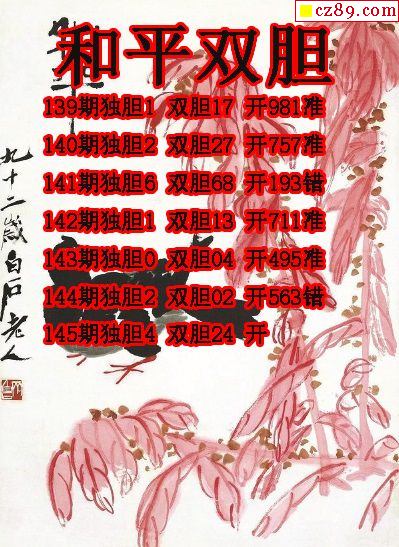 cz89.com
和平双胆
139期独胆1 双胆17 开981准
140期独胆2 双胆27 开757准
141期独胆6 双胆68 开193错
142期独胆1 双胆13 开711准
143期独胆0 双胆04 开495准
144期独胆2 双胆02 开563错
145期独胆4 双胆24 开
九十二岁白石老人